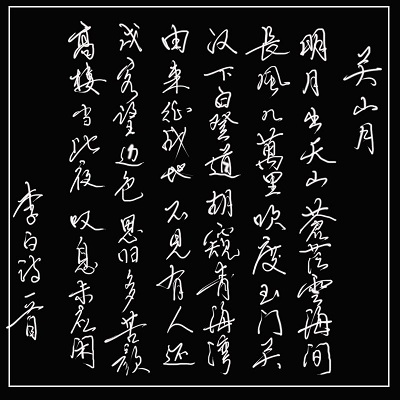 关山月
明月出天山蒼茫雲海间
長風几萬里吹度玉门关
汉下白登道胡窥青海湾
由来征战地不見有人还
戍客望边色思归多苦颜
高楼当此夜叹息未应闲
李白诗一首